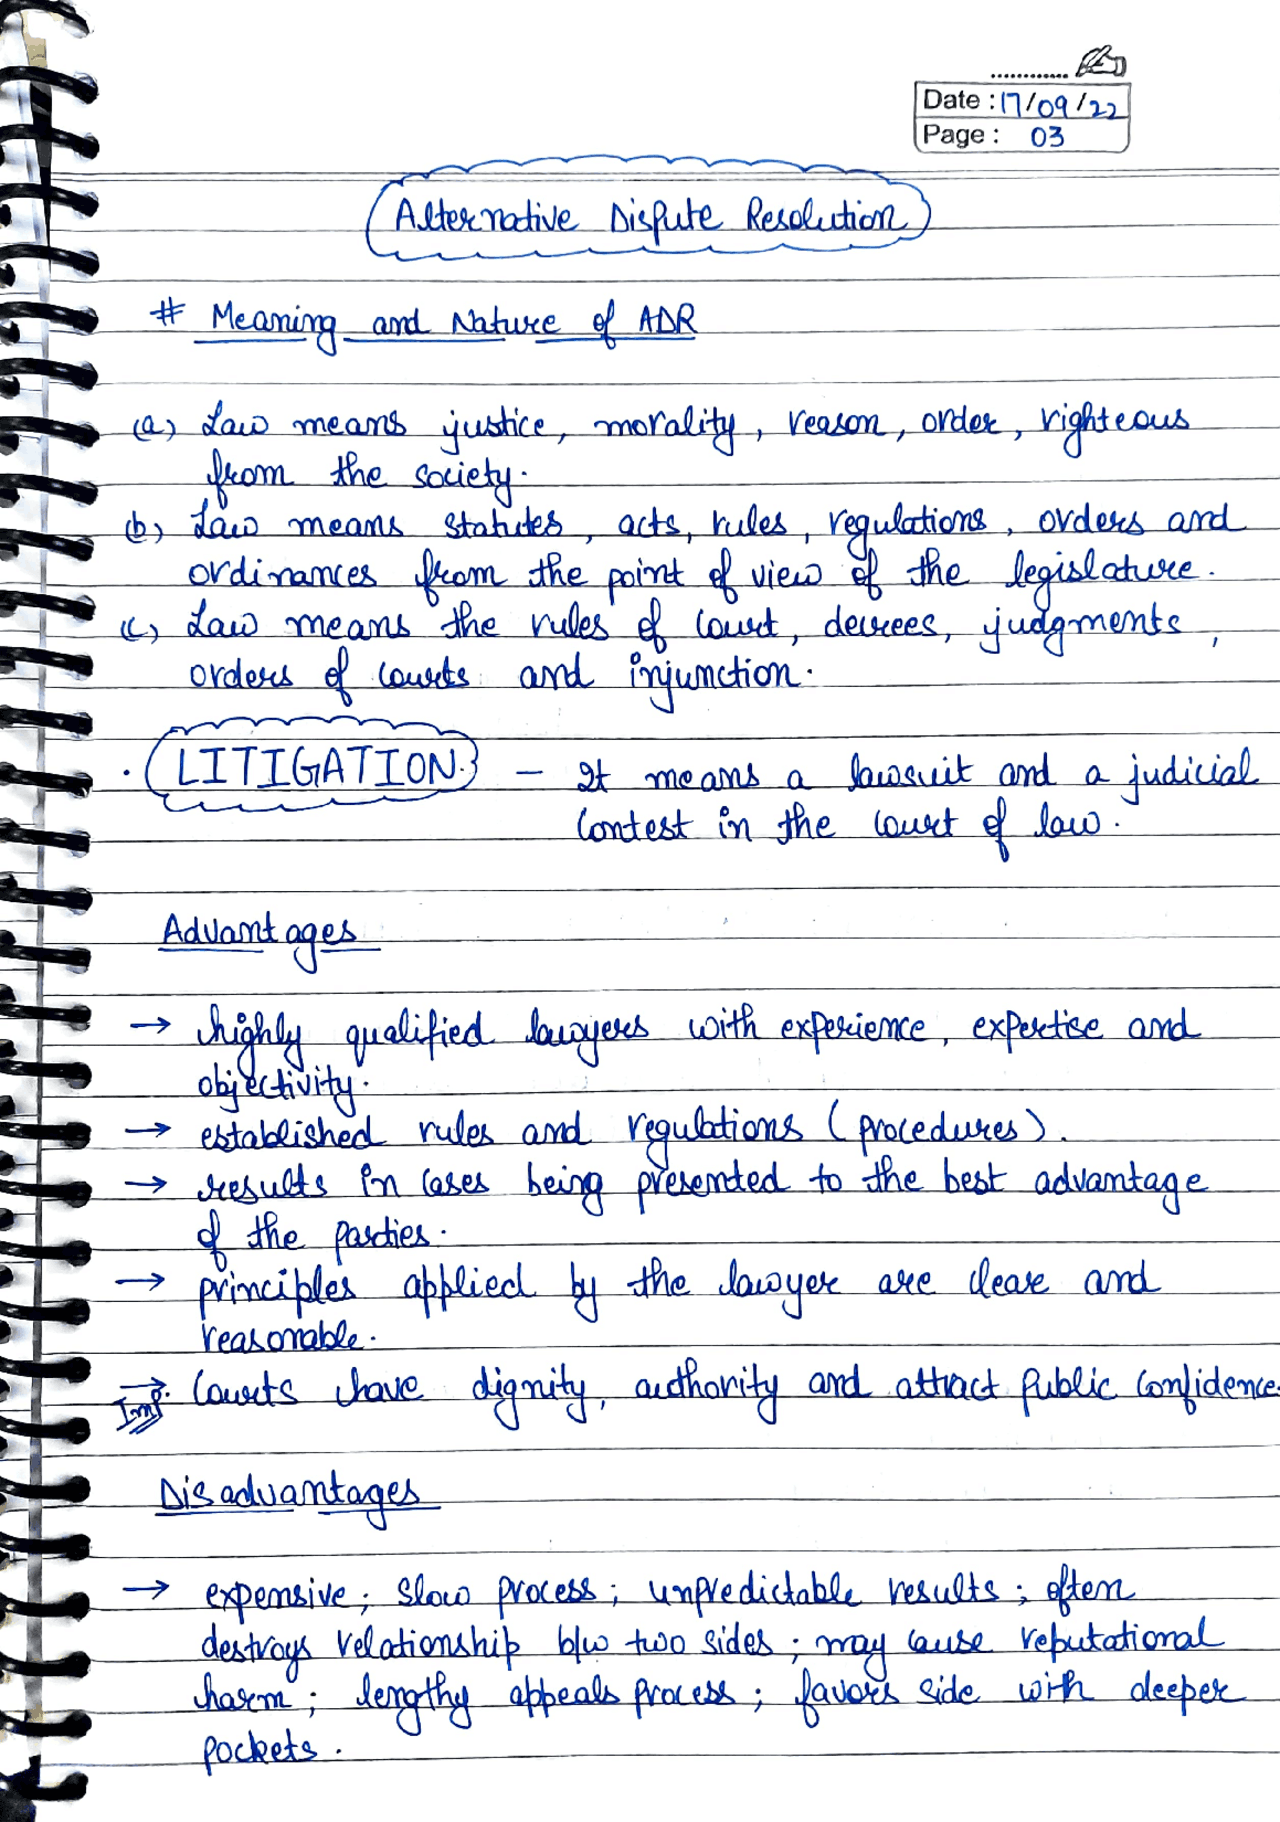 Date : 17/09/22
Page : 03
Alternative Dispute Resolution
# Meaning and Nature of ADR
(a) Law means justice, morality, reason, order, righteous
from the society.
(b) Law means statutes, acts, rules, regulations, orders and
ordinances from the point of view of the legislature.
(c) Law means the rules of court, decrees, judgments,
orders of courts and injunction.
. LITIGATION. - It means a lawsuit and a judicial
contest in the court of law.
Advantages
→ highly qualified lawyers with experience, expertise and
objectivity.
→ established rules and regulations (procedures).
→ results in cases being presented to the best advantage
of the parties.
→ principles applied by the lawyer are clear and
reasonable.
→ Courts have dignity, authority and attract public confidence.
Imp.
Disadvantages
→ expensive; slow process; unpredictable results; often
destroys relationship b/w two sides; may cause reputational
harm; lengthy appeals process; favors side with deeper
pockets.